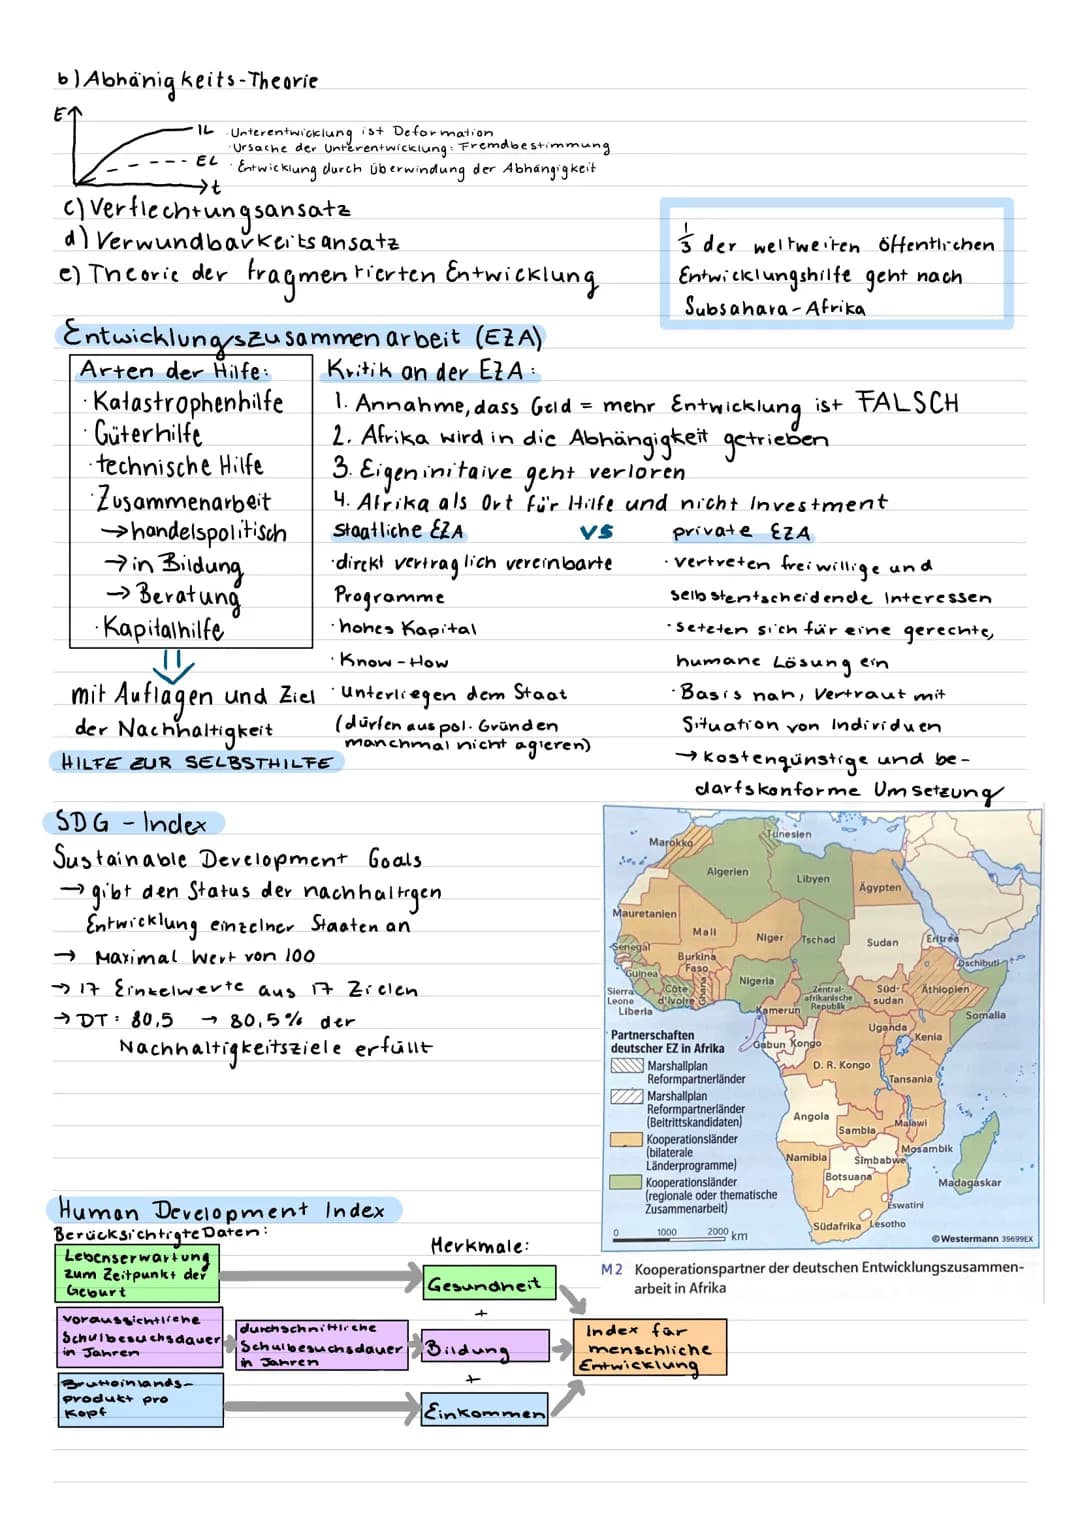 b) Abhänigkeits-Theorie
E
IL
· Unterentwicklung ist Deformation
· Ursache der Unterentwicklung: Fremdbestimmung
EL
· Entwicklung durch überwindung der Abhängigkeit
t
c) Verflechtungsansatz
d) Verwundbarkeitsansatz
e) Theorie der fragmentierten Entwicklung
1/3 der weltweiten öffentlichen
Entwicklungshilfe geht nach
Subsahara-Afrika
Entwicklungszusammenarbeit (EZA)
Arten der Hilfe:
· Katastrophenhilfe
· Güterhilfe
· technische Hilfe
· Zusammenarbeit
→ handelspolitisch
→ in Bildung
→ Beratung
· Kapitalhilfe
mit Auflagen und Ziel
der Nachhaltigkeit
HILFE ZUR SELBSTHILFE
Kritik an der EZA:
1. Annahme, dass Geld = mehr Entwicklung ist FALSCH
2. Afrika wird in die Abhängigkeit getrieben
3. Eigeninitaive geht verloren
4. Afrika als Ort für Hilfe und nicht Investment
staatliche EZA vs private EZA
· direkt vertraglich vereinbarte
Programme
· hohes Kapital
· Know-How
· Unterliegen dem Staat
(dürfen aus pol. Gründen
manchmal nicht agieren)
· vertreten freiwillige und
selbstentscheidende Interessen
· setzten sich für eine gerechte,
humane Lösung ein
· Basis nah, Vertraut mit
Situation von Individuen
→ kostengünstige und be-
darfskonforme Umsetzung
SDG - Index
Sustainable Development Goals
→ gibt den Status der nachhaltigen
Entwicklung einzelner Staaten an
→ Maximal Wert von 100
→ 17 Einkelwerte aus 17 Zielen
→ DT: 80,5 → 80,5% der
Nachhaltigkeitsziele erfüllt
Marokko
Tunesien
Algerien
Libyen
Ägypten
Mauretanien
Mali
Niger
Tschad
Sudan
Eritrea
Senegal
Burkina
Faso
Dschibuti
Guinea
Nigeria
Sierra
Leone
Côte
d'Ivoire
Ghana
Zentral-
afrikanische
Republik
Süd-
sudan
Äthiopien
Liberia
Kamerun
Somalia
Uganda
Kenia
Gabun
Kongo
D. R. Kongo
Tansania
Angola
Sambia
Malawi
Mosambik
Namibia
Simbabwe
Botsuana
Madagaskar
Eswatini
Südafrika
Lesotho
Partnerschaften
deutscher EZ in Afrika
Marshallplan
Reformpartnerländer
Marshallplan
Reformpartnerländer
(Beitrittskandidaten)
Kooperationsländer
(bilaterale
Länderprogramme)
Kooperationsländer
(regionale oder thematische
Zusammenarbeit)
0 1000 2000 km
© Westermann 39699EX
M 2 Kooperationspartner der deutschen Entwicklungszusammen-
arbeit in Afrika
Human Development Index
Berücksichtigte Daten:
Merkmale:
Lebenserwartung
zum Zeitpunkt der
Geburt
Gesundheit
+
voraussichtliche
Schulbesuchsdauer
in Jahren
durchschnittliche
Schulbesuchsdauer
in Jahren
Bildung
+
Index für
menschliche
Entwicklung
Bruttoinlands-
produkt pro
Kopf
Einkommen